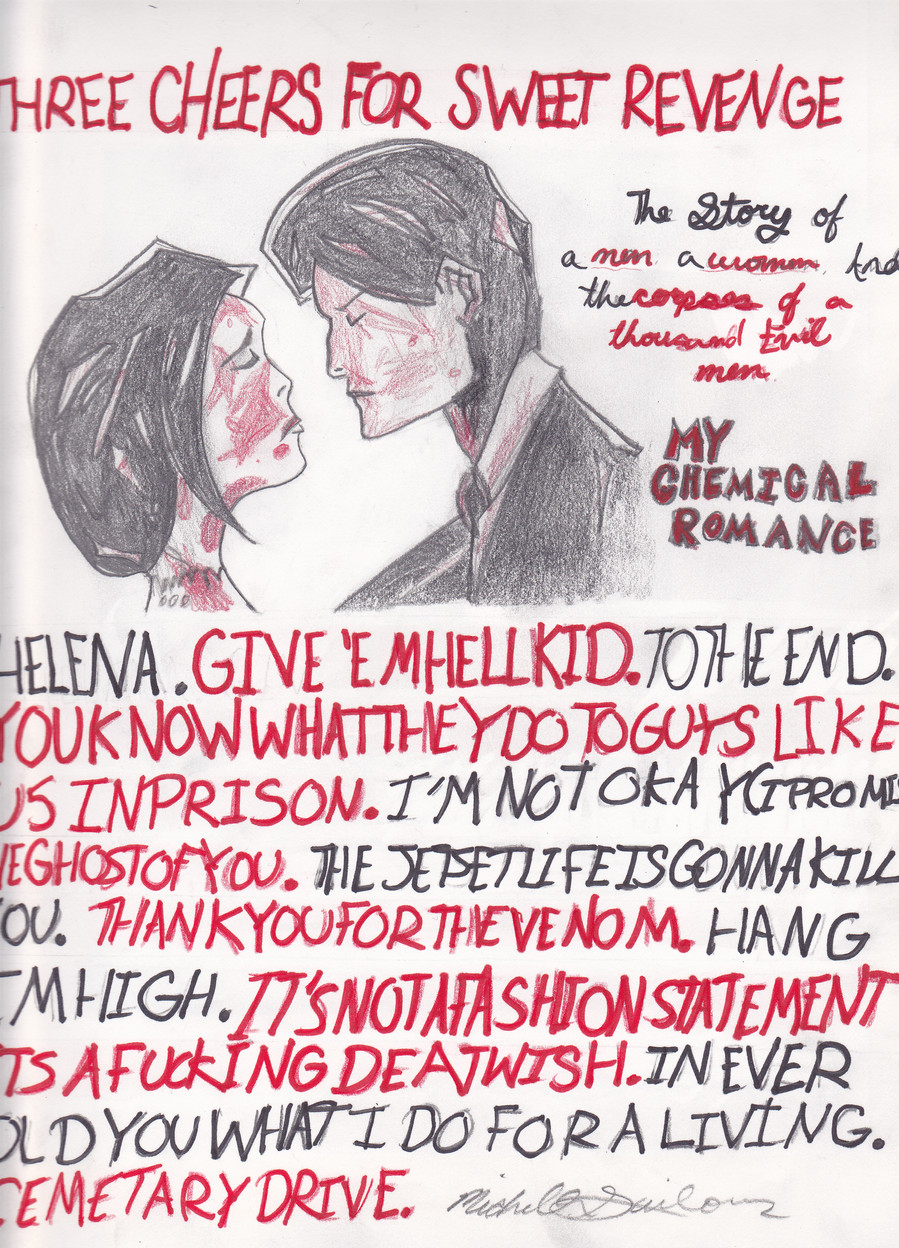 THREE CHEERS FOR SWEET REVENGE
The Story of
a men a women And
the corpses of a
thousand Evil
men.
MY
CHEMICAL
ROMANCE
HELENA. GIVE 'EM HELL KID. TO THE END.
YOU KNOW WHAT THEY DO TO GUYS LIKE
US IN PRISON. I'M NOT OKAY (I PROMI
HE GHOST OF YOU. THE JETSET LIFE IS GONNA KILL
YOU. THANK YOU FOR THE VENOM. HANG
'EM HIGH. IT'S NOT A FASHION STATEMENT
ITS A FUCKING DEATWISH. I NEVER
OLD YOU WHAT I DO FOR A LIVING.
CEMETARY DRIVE.